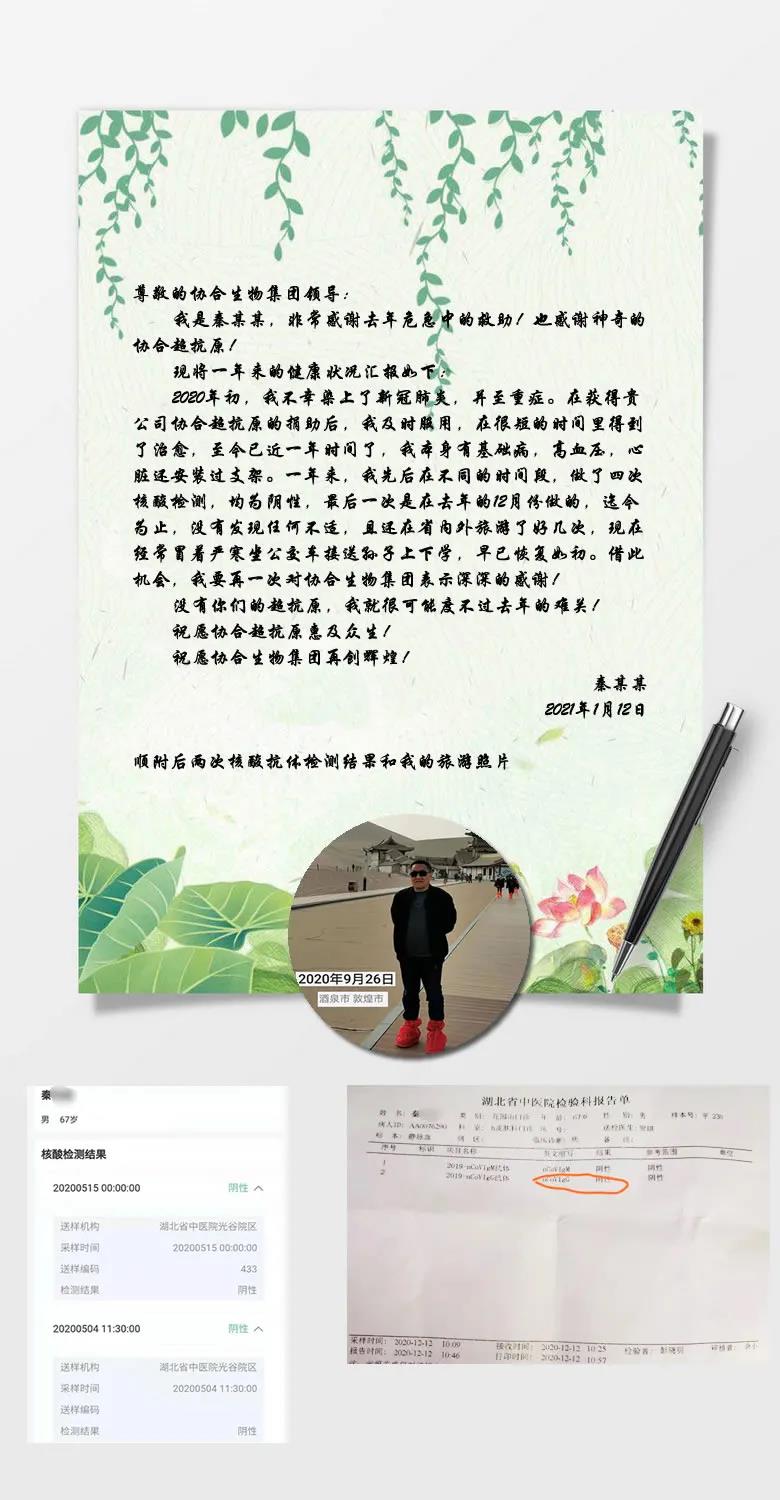 尊敬的协合生物集团领导：
我是秦某某，非常感谢去年危急中的救助！也感谢神奇的
协合超抗原！
现将一年来的健康状况汇报如下：
2020年初，我不幸染上了新冠肺炎，并至重症。在获得贵
公司协合超抗原的捐助后，我及时服用，在很短的时间里得到
了治愈，至今已近一年时间了，我本身有基础病，高血压，心
脏还安装过支架。一年来，我先后在不同的时间段，做了四次
核酸检测，均为阴性，最后一次是在去年的12月份做的，迄今
为止，没有发现任何不适，且还在省内外旅游了好几次，现在
经常冒着严寒坐公交车接送孙子上下学，早已恢复如初。借此
机会，我要再一次对协合生物集团表示深深的感谢！
没有你们的超抗原，我就很可能度不过去年的难关！
祝愿协合超抗原惠及众生！
祝愿协合生物集团再创辉煌！
秦某某
2021年1月12日
顺附后两次核酸抗体检测结果和我的旅游照片
2020年9月26日
酒泉市 敦煌市
秦
男 67岁
核酸检测结果
20200515 00:00:00 阴性
送样机构 湖北省中医院光谷院区
采样时间 20200515 00:00:00
送样编码 433
检测结果 阴性
20200504 11:30:00 阴性
送样机构 湖北省中医院光谷院区
采样时间 20200504 11:30:00
送样编码
检测结果 阴性
湖北省中医院检验科报告单
姓 名：秦 类 别： 年 龄：67岁 性 别：男 样本号：
病人ID：AA0076290 科 室： 床 号： 送检医生：
标 本：静脉血 病 区： 临床诊断： 备 注：
序号 标识 项目名称 英文缩写 结果 参考范围 单位
1 2019-nCoVIgM抗体 nCoVIgM 阴性 阴性
2 2019-nCoVIgG抗体 nCoVIgG 阴性 阴性
采样时间：2020-12-12 10:09 接收时间：2020-12-12 10:25 检验者： 审核者：
报告时间：2020-12-12 10:46 打印时间：2020-12-12 10:57